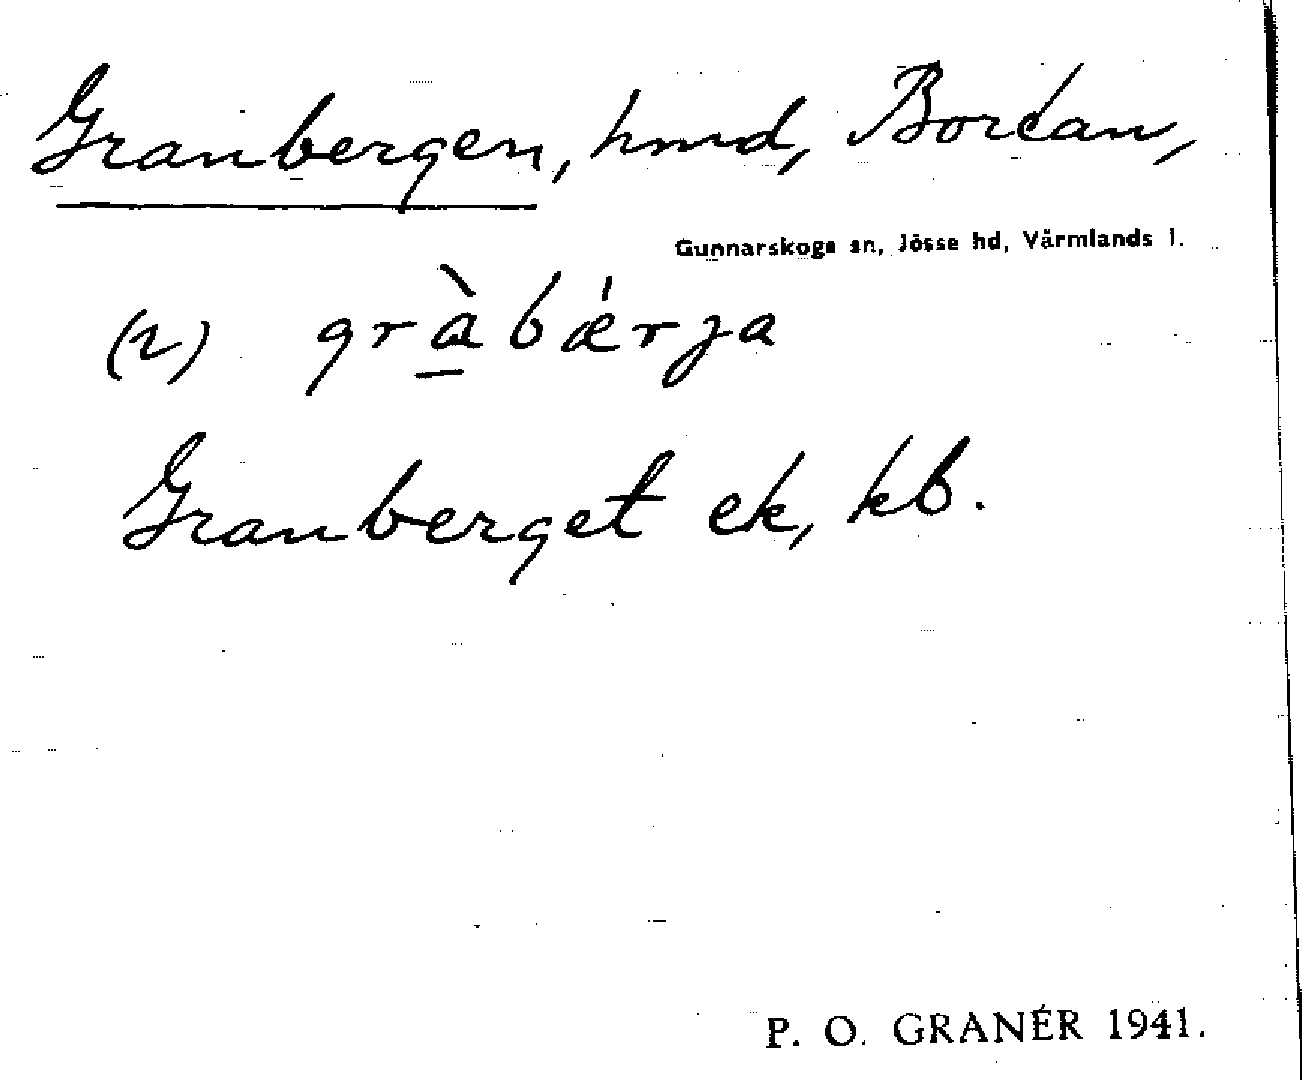 Granbergen, hmd, Boréan,
Gunnarskogs sn, Jösse hd, Värmlands l.
(2) gràbǽrja
Granberget ek, kb.
P. O. GRANÉR 1941.